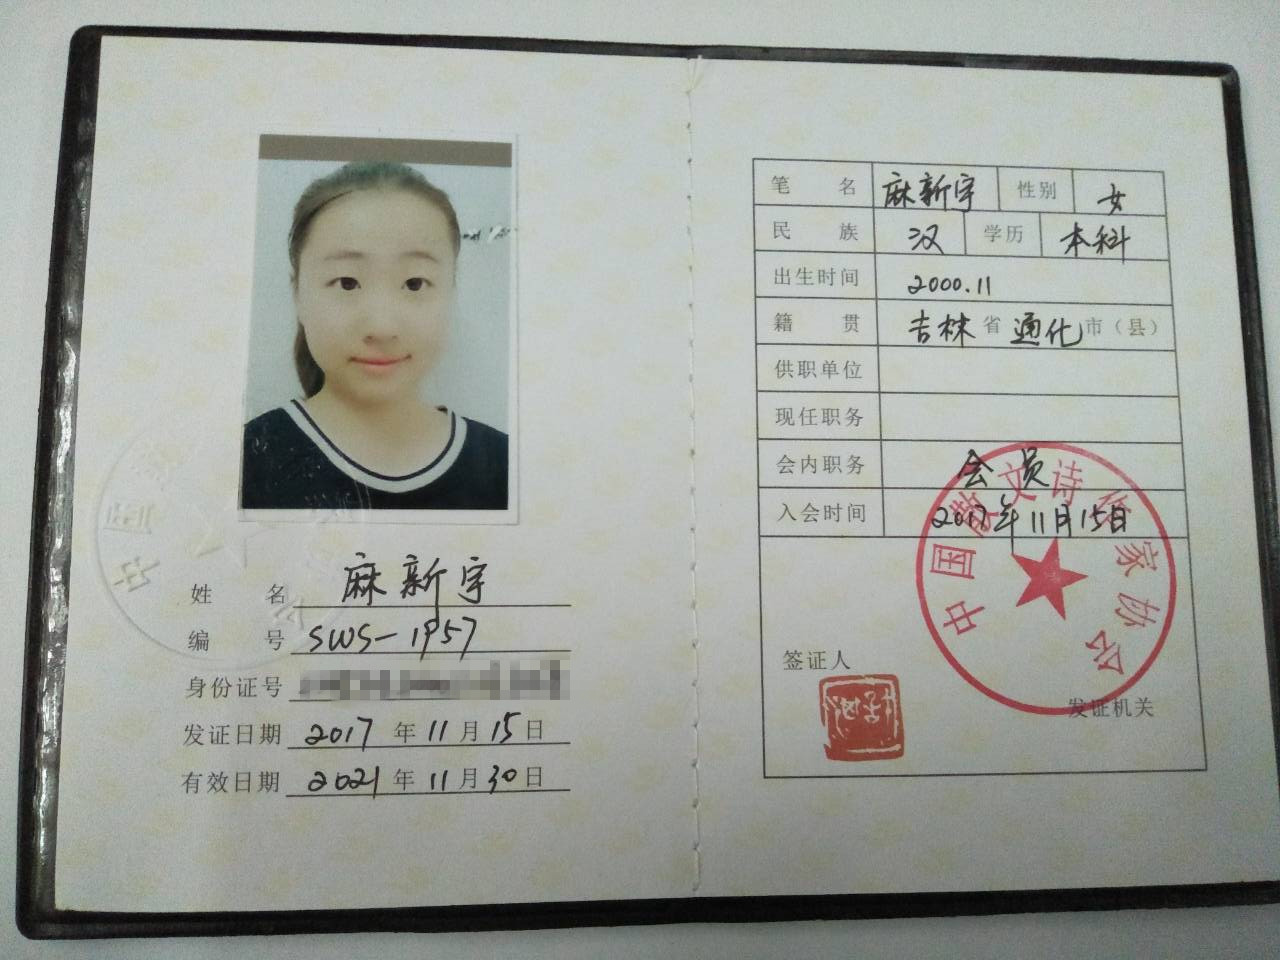 姓 名 麻新宇
编 号 SWS-1957
身份证号
发证日期 2017 年 11 月 15 日
有效日期 2021 年 11 月 30 日
笔 名 麻新宇 性别 女
民 族 汉 学历 本科
出生时间 2000.11
籍 贯 吉林 省 通化 市（县）
供职单位
现任职务
会内职务 会员
入会时间 2017年11月15日
中国散文诗作家协会
签证人
发证机关